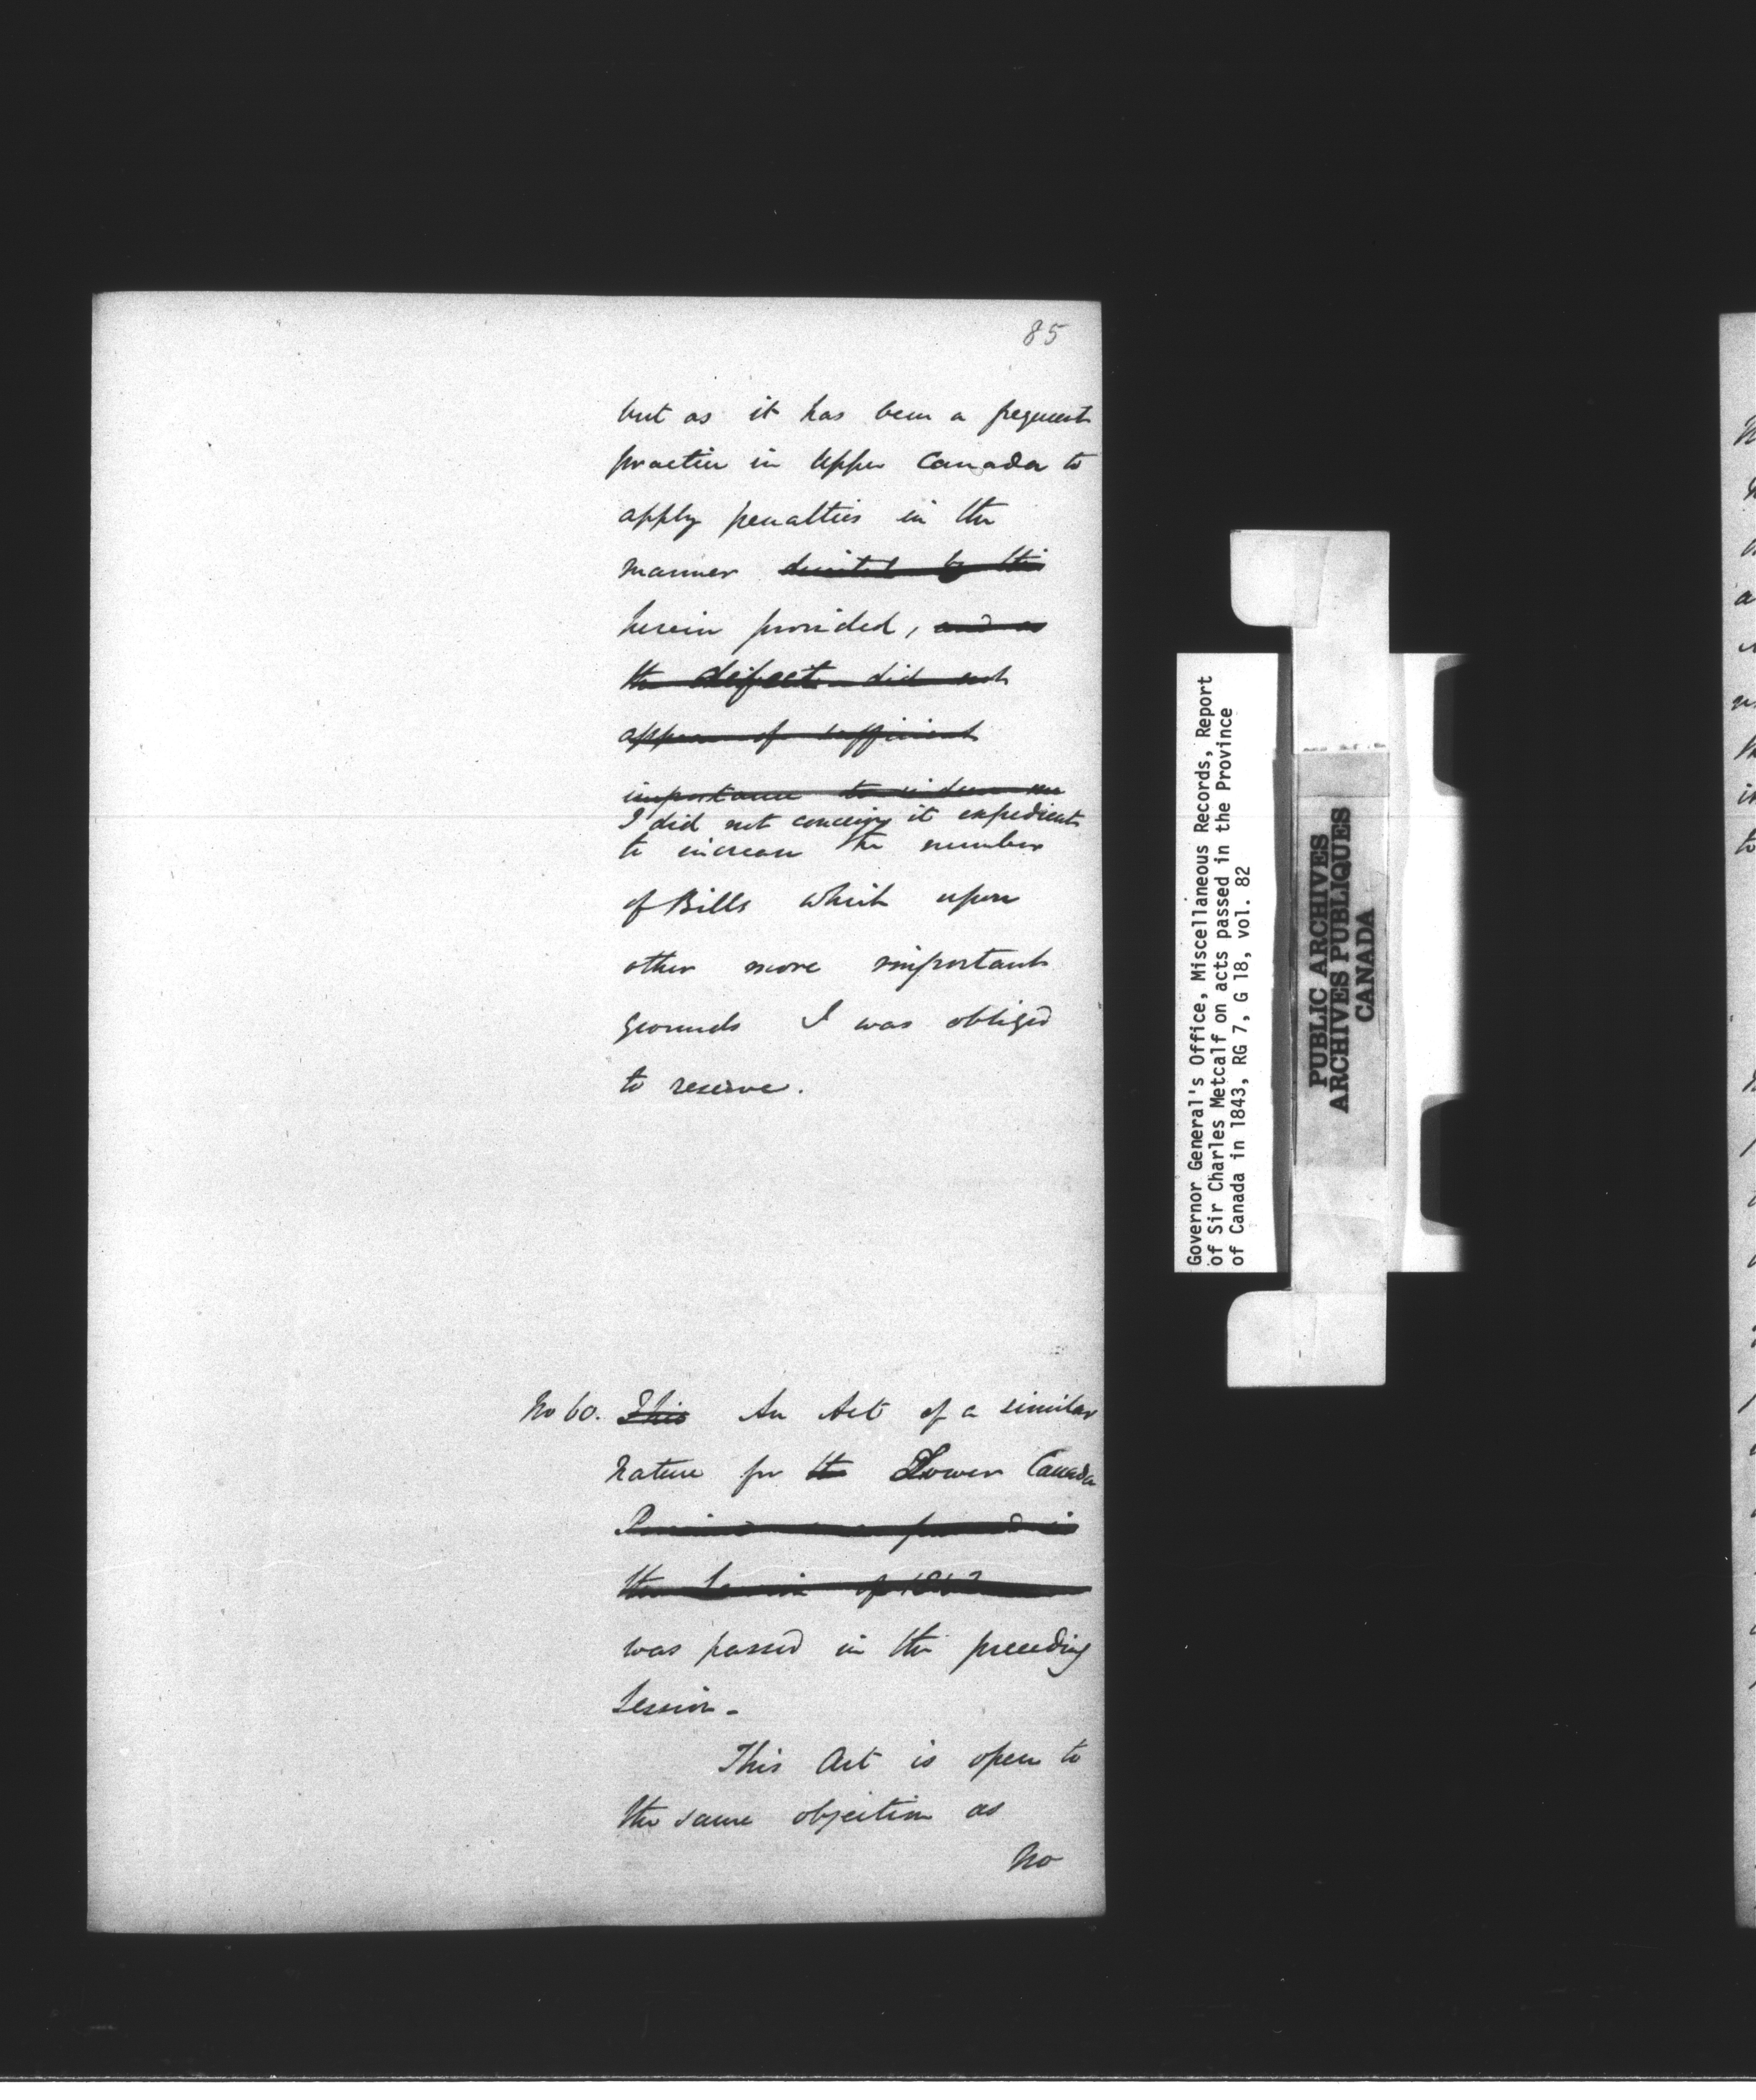 85
but as it has been a frequent
practice in Upper Canada to
apply penalties in the
manner directed by this
herein provided, and as
the defect did not
appear of sufficient
importance to induce me
I did not conceive it expedient
to increase the number
of Bills which upon
other more important
grounds I was obliged
to reserve.
No 60. This An Act of a similar
nature for the Lower Canada
Province was passed in
the Session of 1842
was passed in the preceding
Session -
This Act is open to
the same objection as
No
Governor General's Office, Miscellaneous Records, Report
of Sir Charles Metcalf on acts passed in the Province
of Canada in 1843, RG 7, G 18, vol. 82
PUBLIC ARCHIVES
ARCHIVES PUBLIQUES
CANADA